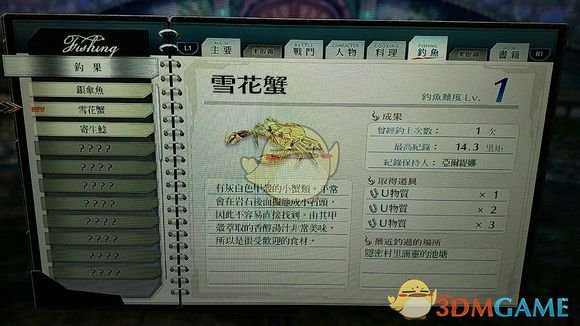 Fishing
L1
主要
戰鬥
人物
料理
釣魚
書籍
R1
釣果
銀傘魚
雪花蟹
寄生鯰
????
????
????
????
????
????
????
雪花蟹
釣魚難度Lv. 1
成果
曾經釣上次數: 1 次
最高紀錄: 14.3 里矩
紀錄保持人: 亞爾緹娜
有灰白色甲殼的小蟹類,平常
會在岩石後面擬態成小石頭,
因此不容易直接找到,由其甲
殼萃取的香醇湯汁非常美味,
所以是很受歡迎的食材。
取得道具
U物質 × 1
U物質 × 2
U物質 × 3
最近釣過的場所
隱密村里清靈的池塘
3DMGAME